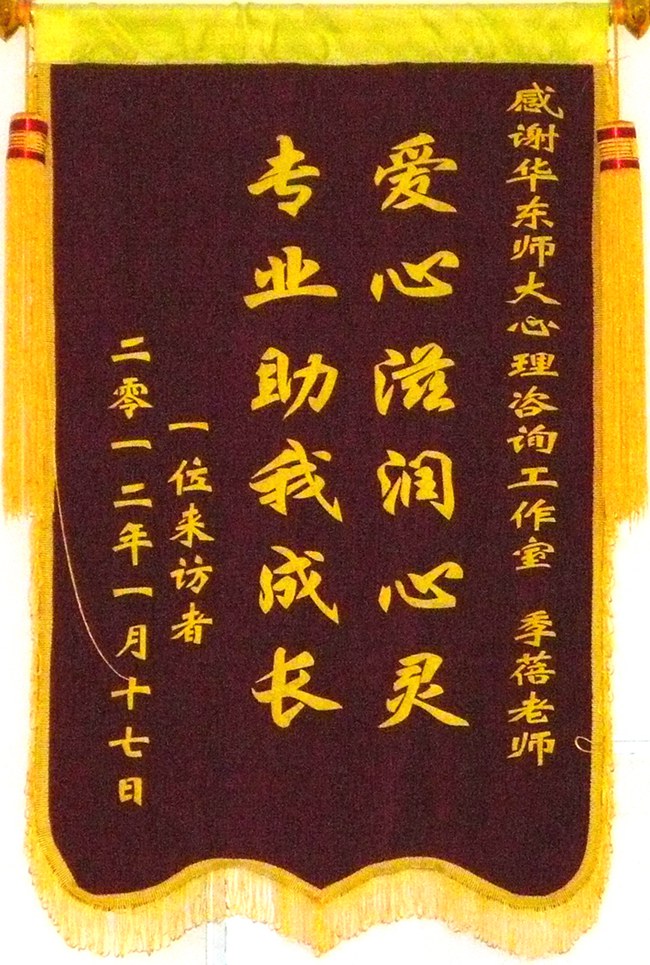 感谢华东师大心理咨询工作室 季蓓老师
爱心滋润心灵
专业助我成长
一位来访者
二零一二年一月十七日